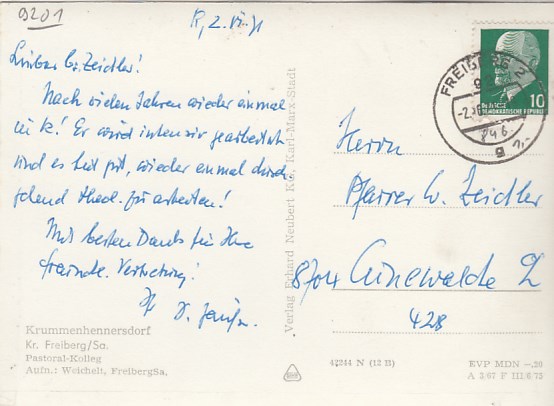 9201
K, 2. VI. 71
Lieber Br. Zeidler!
Nach vielen Jahren wieder einmal
in K! Er wird intensiv gearbeitet
und es tut gut, wieder einmal durch-
gehend theol. zu arbeiten!
Mit besten Dank für Ihre
freundl. Vertretung!
Ihr D.
Krummenhennersdorf
Kr. Freiberg/Sa.
Pastoral-Kolleg
Aufn.: Weichelt, FreibergSa.
Verlag Erhard Neubert KG, Karl-Marx-Stadt
42244 N (12 B)
FREIBERG 2
10
DEUTSCHE
DEMOKRATISCHE REPUBLIK
Herrn
Pfarrer W. Zeidler
8704 Cunewalde 2
428
EVP MDN -,20
A 3/67 F III/6/73